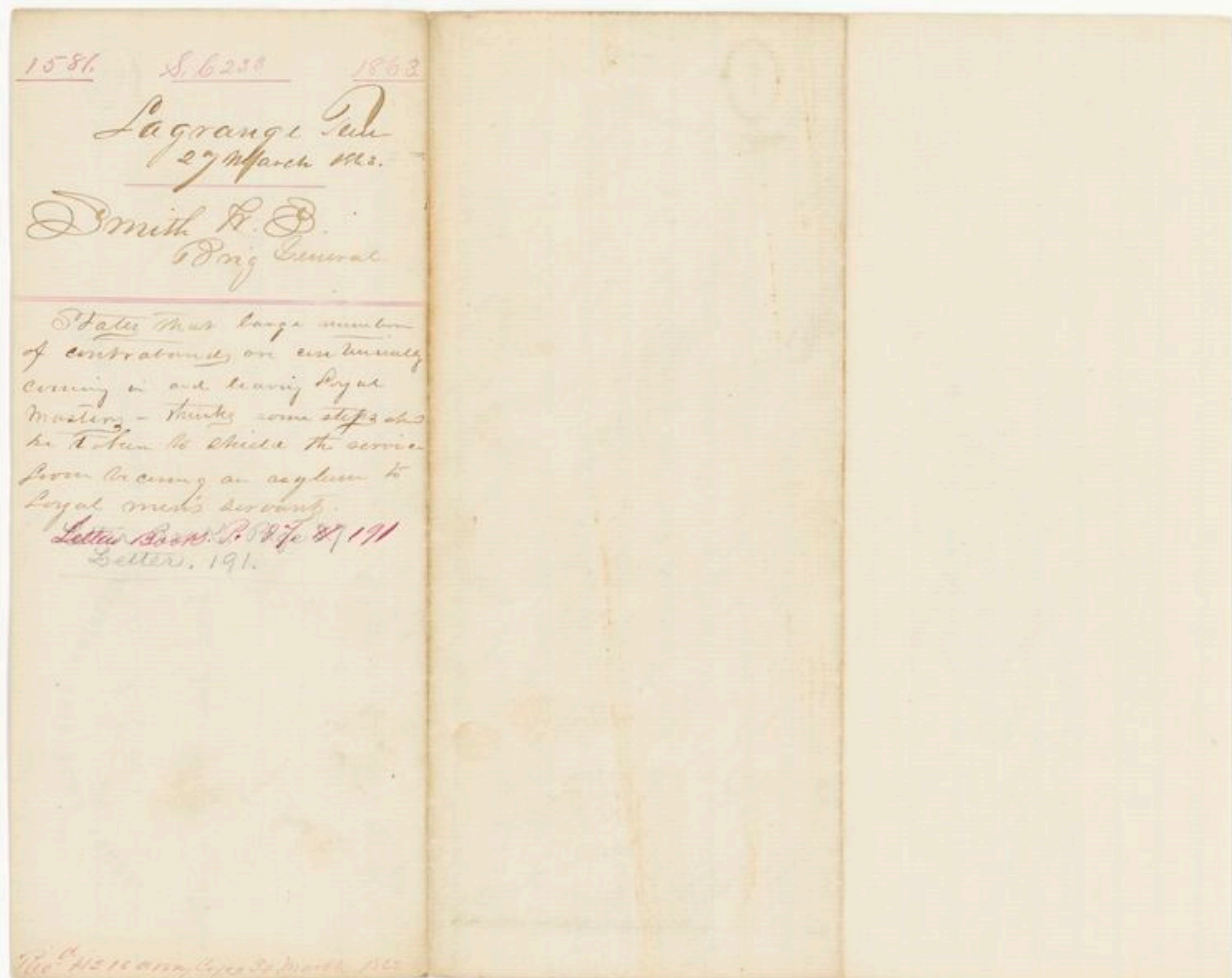 1581. S. 6233 1863
Lagrange Ten
27 March 1863.
Smith W. S.
Brig General
States that large number
of contrabands are continually
coming in and leaving Loyal
Masters – thinks some steps
be taken to shield the service
from becoming an asylum to
Loyal men's servants.
Letter Book P. 87 191
Letter. 191.
Rec'd 16 Army Corps 30 March 1863